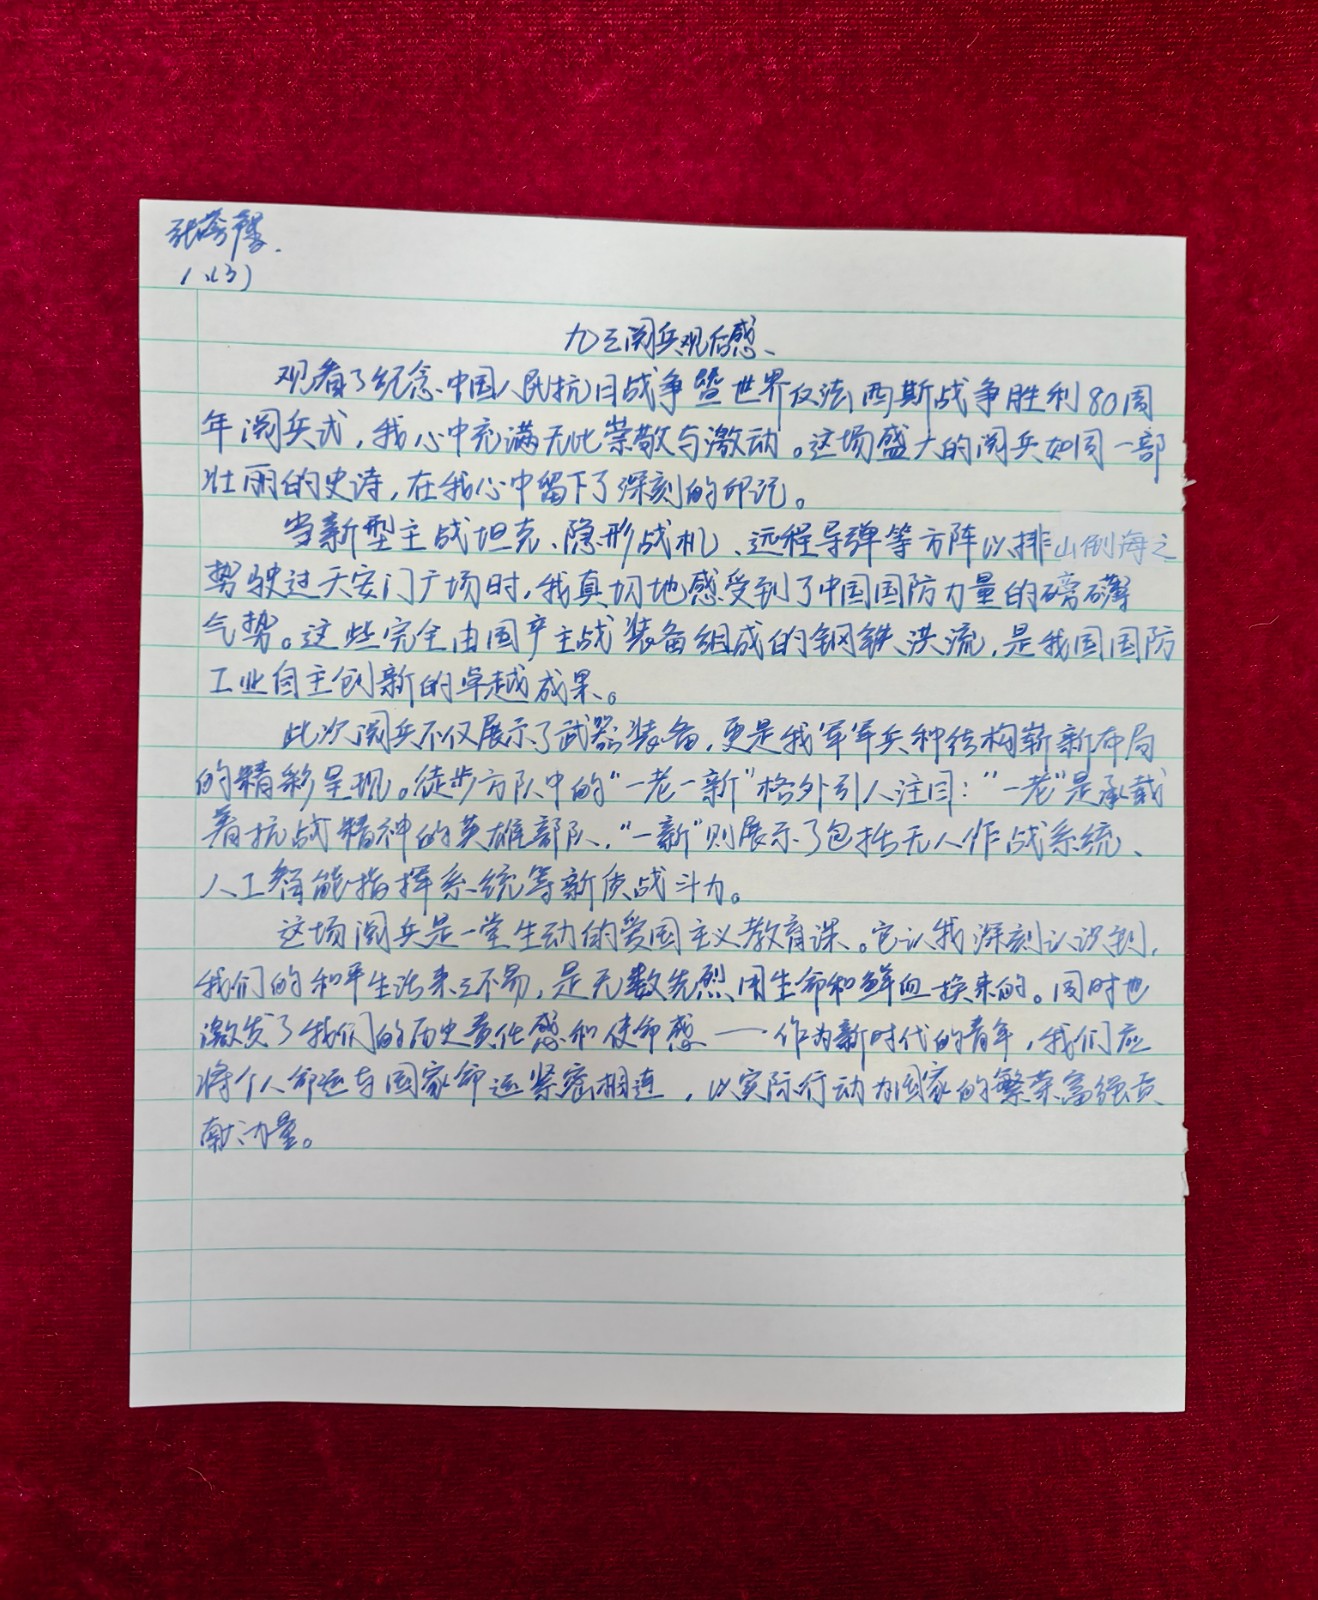 张
1.(3)
九三阅兵观后感
观看了纪念中国人民抗日战争暨世界反法西斯战争胜利80周
年阅兵式，我心中充满无比崇敬与激动。这场盛大的阅兵如同一部
壮丽的史诗，在我心中留下了深刻的印记。
当新型主战坦克、隐形战机、远程导弹等方阵以排山倒海之
势驶过天安门广场时，我真切地感受到了中国国防力量的磅礴
气势。这些完全由国产主战装备组成的钢铁洪流，是我国国防
工业自主创新的卓越成果。
此次阅兵不仅展示了武器装备，更是我军军兵种结构崭新布局
的精彩呈现。徒步方队中的“一老一新”格外引人注目：“一老”是承载
着抗战精神的英雄部队，“一新”则展示了包括无人作战系统、
人工智能指挥系统等新质战斗力。
这场阅兵是一堂生动的爱国主义教育课。它让我深刻认识到，
我们的和平生活来之不易，是无数先烈用生命和鲜血换来的。同时也
激发了我们的历史责任感和使命感——作为新时代的青年，我们应
将个人命运与国家命运紧密相连，以实际行动为国家的繁荣富强贡
献力量。